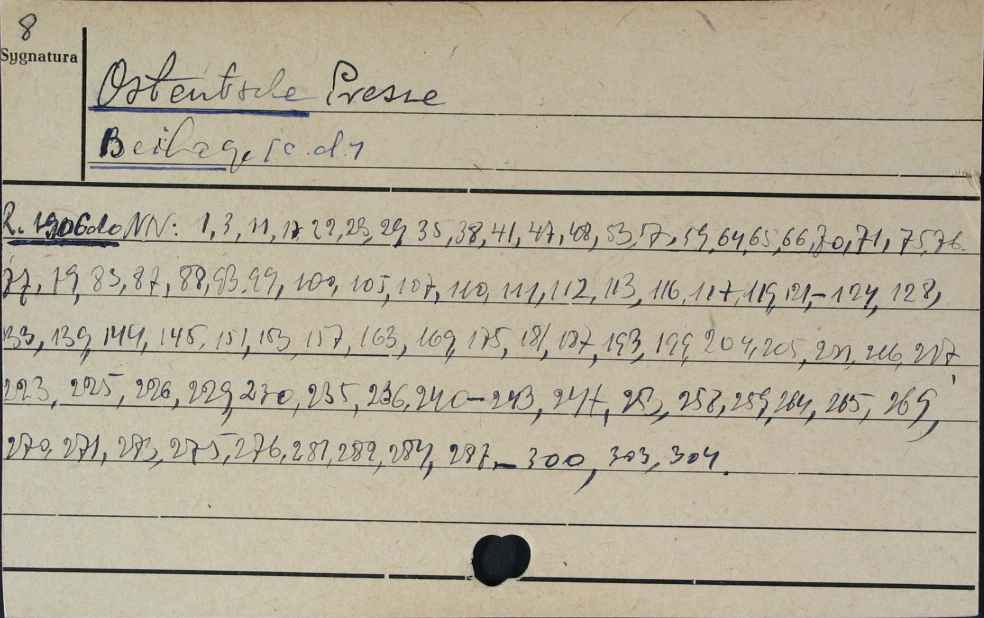 8
Sygnatura
Ostdeutsche Presse
Beilage [c.d.]
R. 1906 do NN: 1, 3, 11, 17, 22, 23, 29, 35, 38, 41, 47, 48, 53, 57, 59, 64, 65, 66, 70, 71, 75, 76,
77, 79, 83, 87, 88, 93, 99, 100, 105, 107, 110, 111, 112, 113, 116, 117, 119, 121,-124, 128,
133, 139, 144, 145, 151, 153, 157, 163, 169, 175, 181, 187, 193, 199, 204, 205, 211, 216, 217,
223, 225, 226, 229, 230, 235, 236, 240-243, 247, 253, 258, 259, 264, 265, 269,
270, 271, 273, 275, 276, 281, 282, 284, 287,-300, 303, 304.